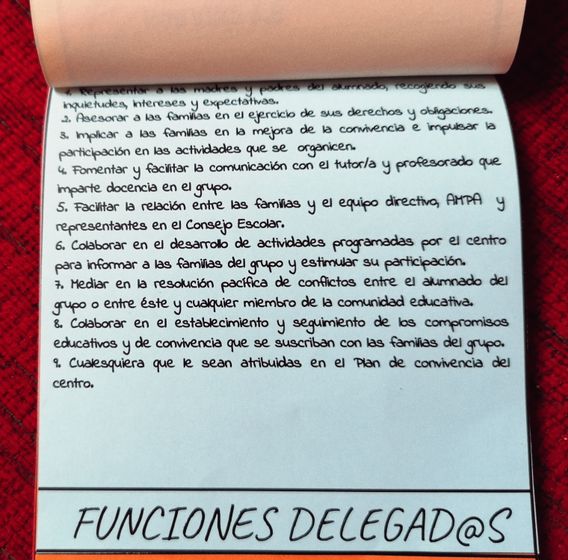 1. Representar a las madres y padres del alumnado, recogiendo sus
inquietudes, intereses y expectativas.
2. Asesorar a las familias en el ejercicio de sus derechos y obligaciones.
3. Implicar a las familias en la mejora de la convivencia e impulsar la
participación en las actividades que se organicen.
4. Fomentar y facilitar la comunicación con el tutor/a y profesorado que
imparte docencia en el grupo.
5. Facilitar la relación entre las familias y el equipo directivo, AMPA y
representantes en el Consejo Escolar.
6. Colaborar en el desarrollo de actividades programadas por el centro
para informar a las familias del grupo y estimular su participación.
7. Mediar en la resolución pacífica de conflictos entre el alumnado del
grupo o entre éste y cualquier miembro de la comunidad educativa.
8. Colaborar en el establecimiento y seguimiento de los compromisos
educativos y de convivencia que se suscriban con las familias del grupo.
9. Cualesquiera que le sean atribuidas en el Plan de convivencia del
centro.
FUNCIONES DELEGAD@S